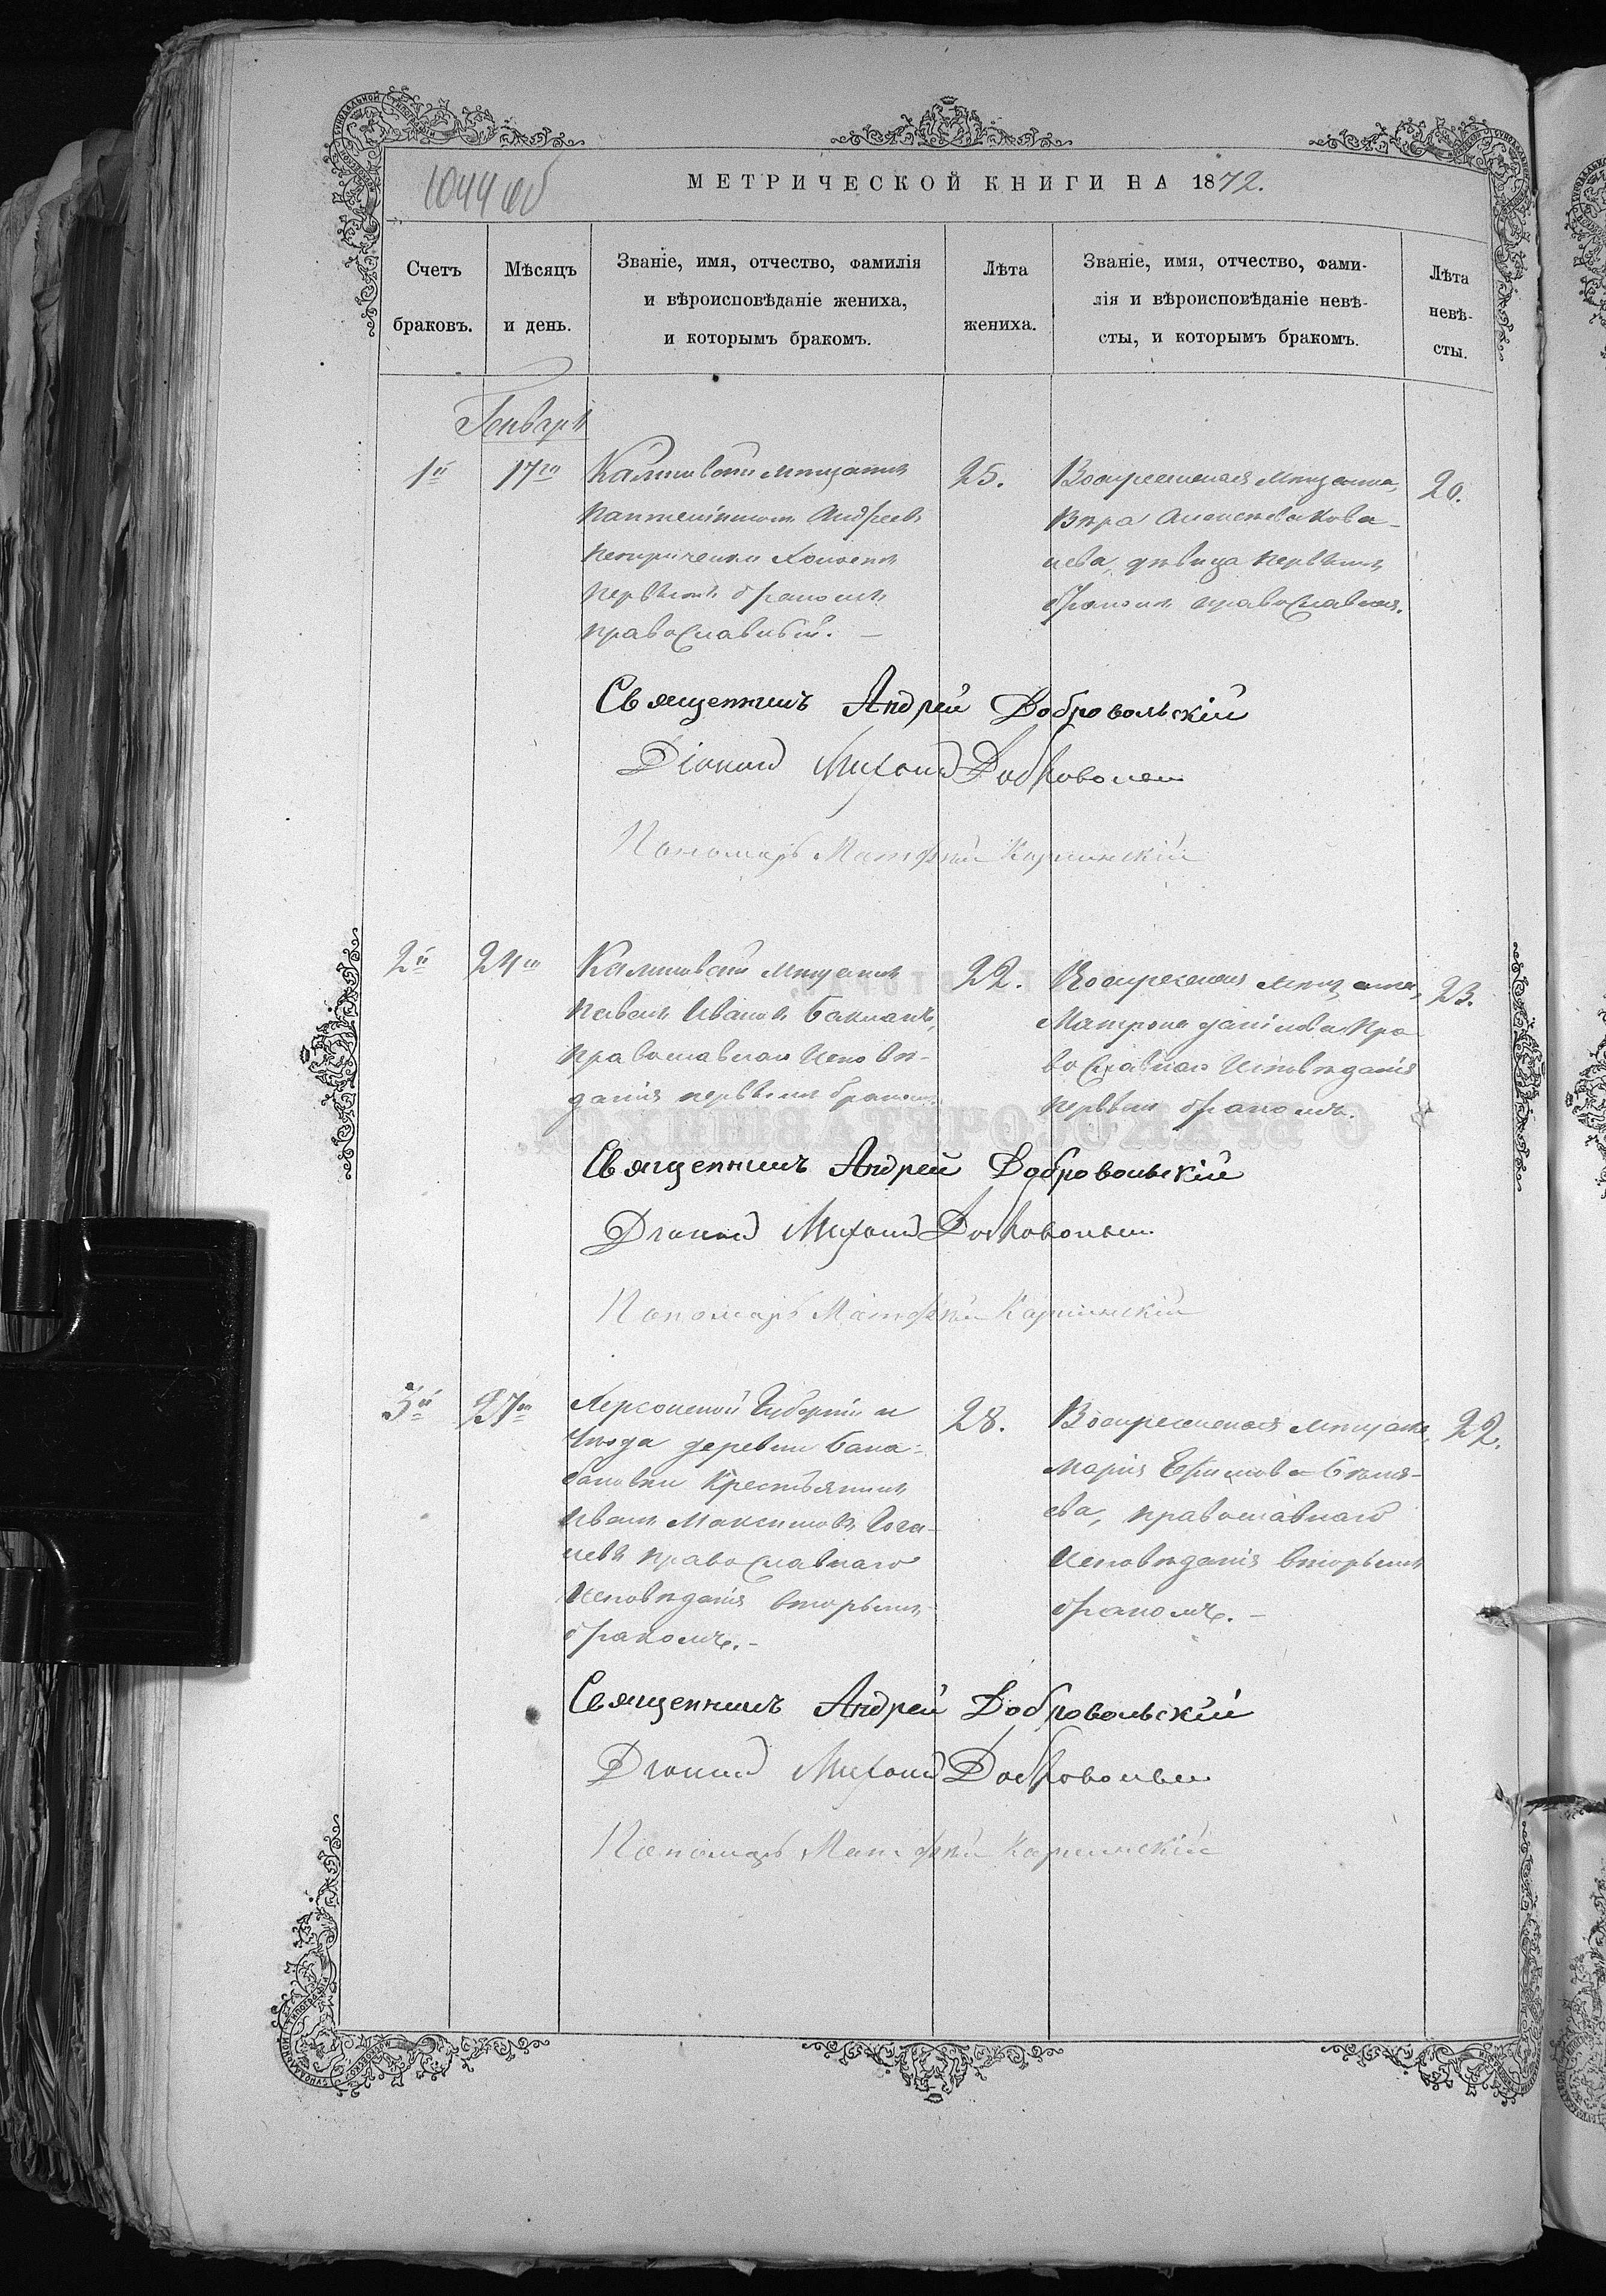 1044 об
МЕТРИЧЕСКОЙ КНИГИ НА 1872.
Счетъ браковъ.
Мѣсяцъ и день.
Званіе, имя, отчество, фамилія
и вѣроисповѣданіе жениха,
и которымъ бракомъ.
Лѣта жениха.
Званіе, имя, отчество, фами-
лія и вѣроисповѣданіе невѣ-
сты, и которымъ бракомъ.
Лѣта
невѣ-
сты.
Генварь
1й
17го
мѣщанинъ
Пантелеимонъ Андреевъ
Петриченко Холостъ
первымъ бракомъ
православный.
25.
Воскресенская мѣщанка,
Вѣра
дѣвица первымъ
бракомъ православная.
20.
Священникъ Андрей Добровольскій
Діаконъ Михаилъ Добровольскій
Пономарь Матфей
2й
24го
мѣщанинъ
Павелъ Ивановъ Бакланъ,
православнаго Исповѣ-
данія первымъ бракомъ.
22.
Воскресенская мѣщанка,
Матрона Данилова Пра-
вославнаго Исповѣданія
первым бракомъ.
23.
Священникъ Андрей Добровольскій
Діаконъ Михаилъ Добровольскій
Пономарь Матфей
3й
27го
Херсонской Губерніи и
Уѣзда деревни Бала-
бановки Крестьянинъ
Иванъ Максимовъ
православнаго
Исповѣданія вторымъ
бракомъ.
28.
Воскресенская мѣщанка,
Марія Ефимова Бѣля-
ева, православнаго
Исповѣданія вторымъ
бракомъ.
22.
Священникъ Андрей Добровольскій
Діаконъ Михаилъ Добровольскій
Пономарь Матфей